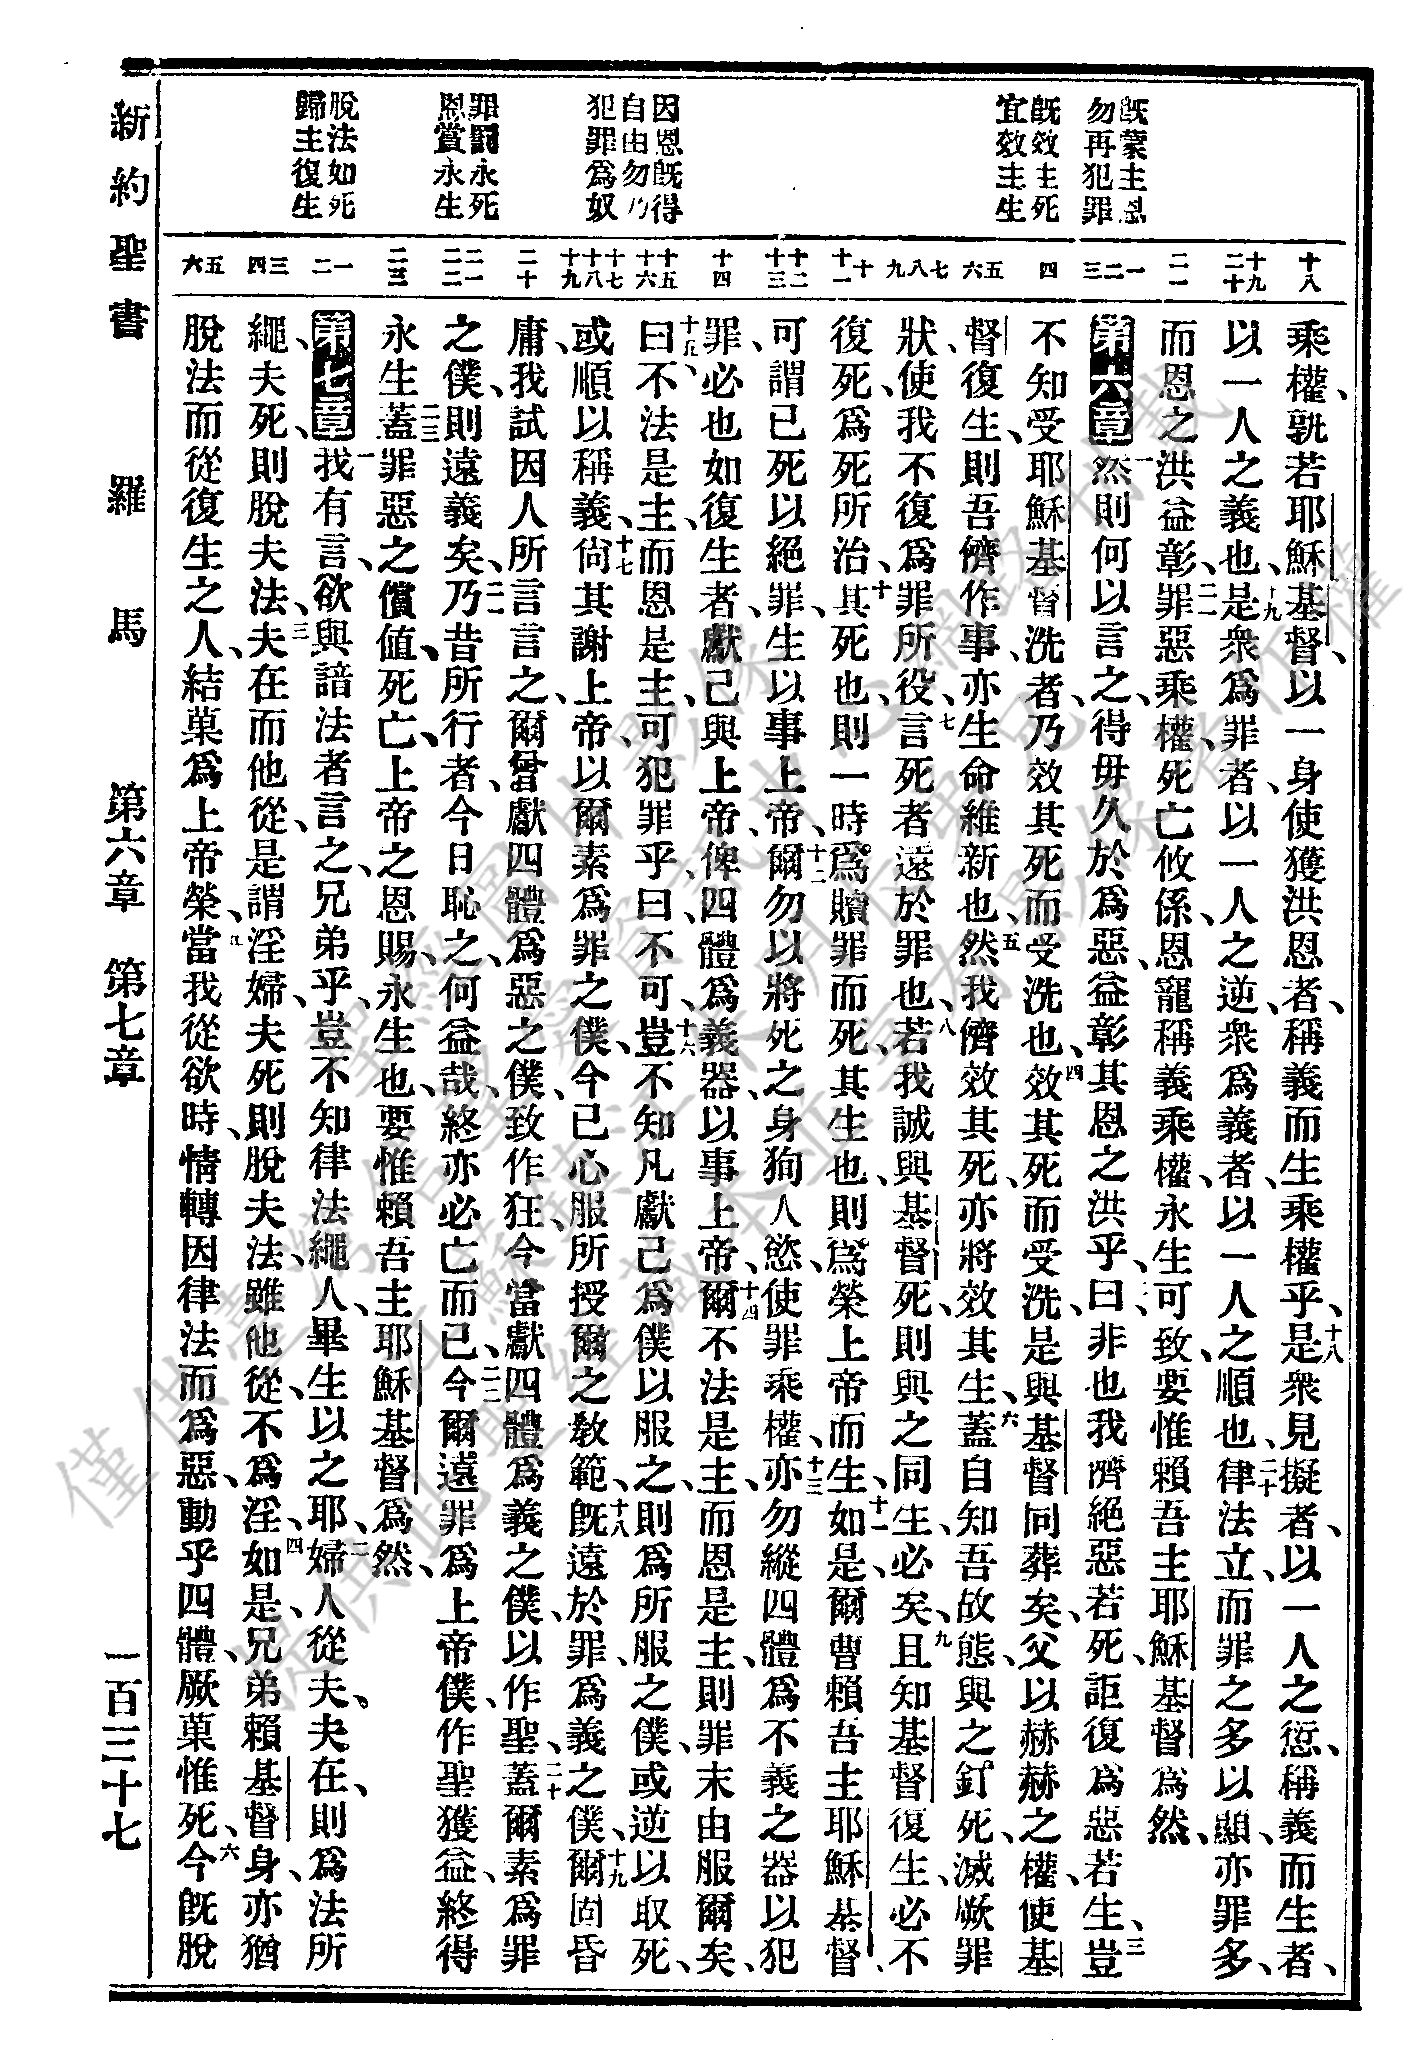 既蒙主恩
勿再犯罪
既效主死
宜效主生
因恩既得
自由勿乃
犯罪爲奴
罪罰永死
恩賞永生
脫法如死
歸主復生
十八
十九
二十
二一
一
二
三
四
五
六
七
八
九
十
十一
十二
十三
十四
十五
十六
十七
十八
十九
二十
二一
二二
二三
一
二
三
四
五
六
乘權、孰若耶穌基督、以一身使獲洪恩者、稱義而生乘權乎、十八是衆見擬者、以一人之愆、稱義而生者、
以一人之義也、十九是衆爲罪者、以一人之逆、衆爲義者、以一人之順也、二十律法立、而罪之多以顯、亦罪多、
而恩之洪益彰、二一罪惡乘權、死亡攸係、恩寵稱義乘權、永生可致、要惟賴吾主耶穌基督爲然、
第六章一然則何以言之、得毋久於爲惡、益彰其恩之洪乎、二曰、非也、我儕絕惡若死、詎復爲惡若生、三豈
不知受耶穌基督洗者、乃效其死而受洗也、四效其死而受洗、是與基督同葬矣、父以赫赫之權、使基
督復生、則吾儕作事、亦生命維新也、五然我儕效其死、亦將效其生、六蓋自知吾故態、與之釘死、滅厥罪
狀、使我不復爲罪所役、七言死者遠於罪也、八若我誠與基督死、則與之同生必矣、九且知基督復生、必不
復死、爲死所治、十其死也、則一時爲贖罪而死、其生也、則爲榮上帝而生、十一如是、爾曹賴吾主耶穌基督、
可謂已死以絕罪、生以事上帝、十二爾勿以將死之身狥人慾、使罪乘權、十三亦勿縱四體爲不義之器以犯
罪、必也如復生者、獻己與上帝、俾四體爲義器、以事上帝、十四爾不法是主、而恩是主、則罪末由服爾矣、
十五曰、不法是主、而恩是主、可犯罪乎、曰、不可、十六豈不知凡獻己爲僕以服之、則爲所服之僕、或逆以取死、
或順以稱義、十七尙其謝上帝、以爾素爲罪之僕、今已心服所授爾之敎範、十八旣遠於罪、爲義之僕、十九爾固昏
庸、我試因人所言言之、爾曾獻四體爲惡之僕、致作狂、今當獻四體爲義之僕、以作聖、二十蓋爾素爲罪
之僕、則遠義矣、二一乃昔所行者、今日恥之、何益哉、終亦必亡而已、二二今爾遠罪、爲上帝僕、作聖獲益、終得
永生、二三蓋罪惡之償值、死亡、上帝之恩賜、永生也、要惟賴吾主耶穌基督爲然、
第七章一我有言、欲與諳法者言之、兄弟乎、豈不知律法繩人、畢生以之耶、二婦人從夫、夫在、則爲法所
繩、夫死、則脫夫法、三夫在而他從、是謂淫婦、夫死則脫夫法、雖他從、不爲淫、四如是、兄弟賴基督身、亦猶
脫法而從復生之人、結菓爲上帝榮、五當我從欲時、情轉因律法而爲惡、動乎四體、厥菓惟死、六今旣脫
新約聖書　羅馬　第六章　第七章　一百三十七
僅供臺灣聖經公會圖片影像